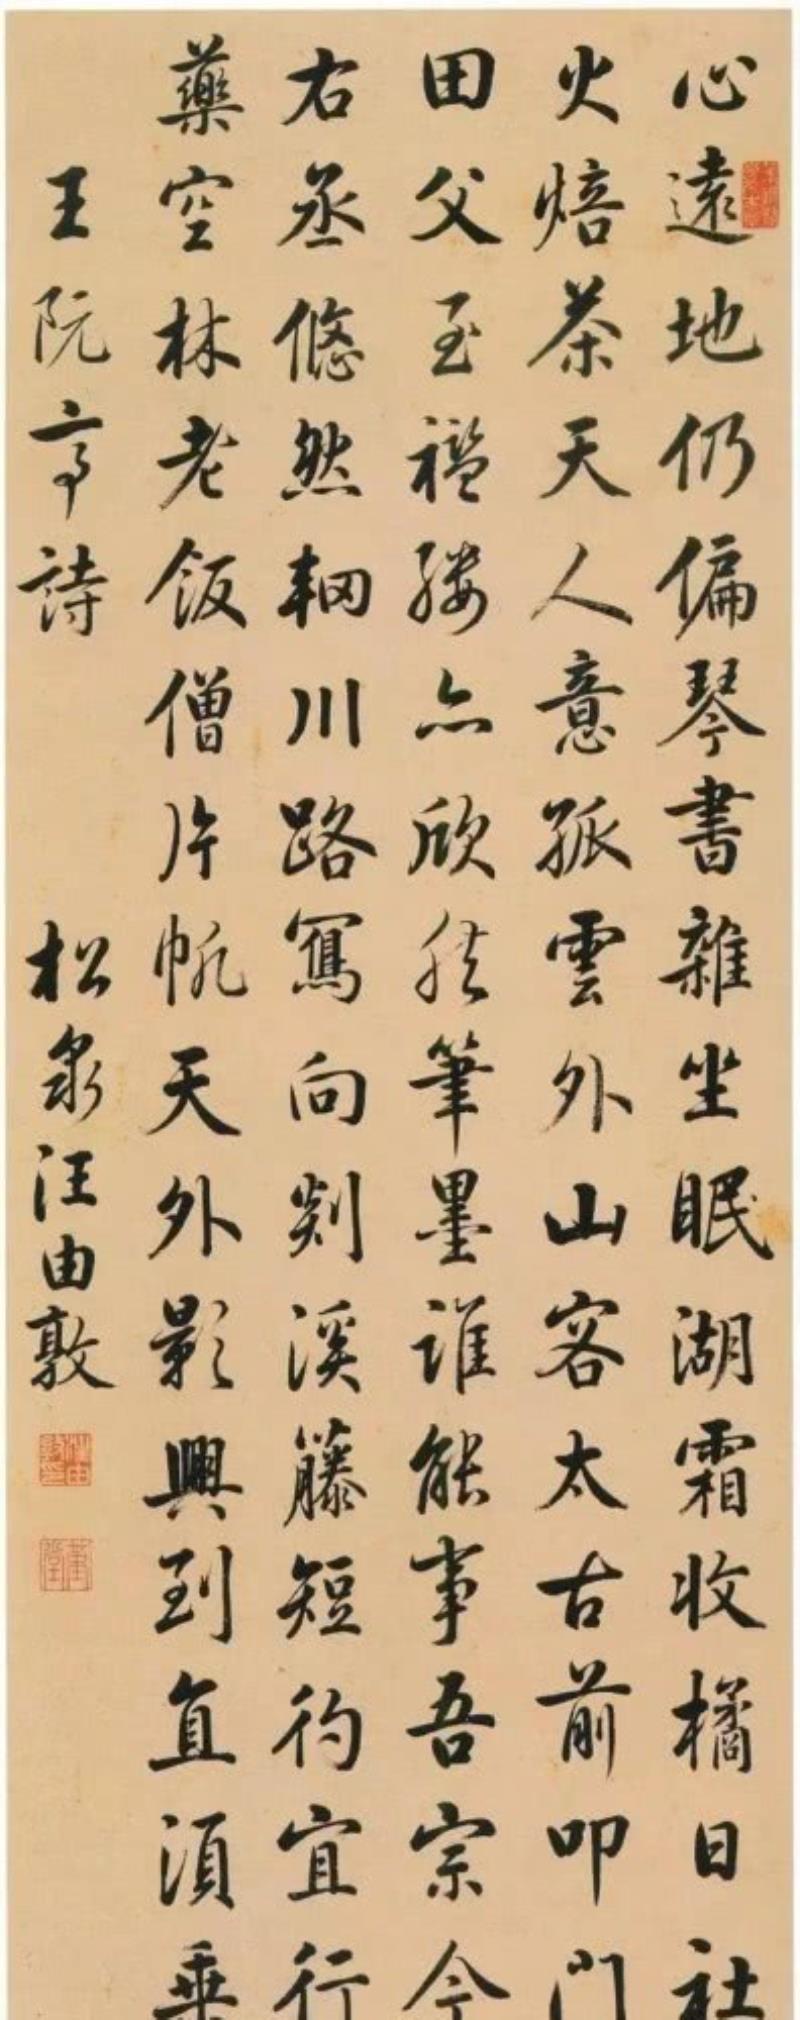 心遠地仍偏琴書雜坐眠湖霜收橘日社
火焙茶天人意孤雲外山客太古前叩門
田父至襤褸亦欣然筆墨誰能事吾宗今
右丞悠然輞川路寫向剡溪藤短彴宜行
藥空林老飯僧片帆天外影興到直須乗
王阮亭詩
松泉汪由敦